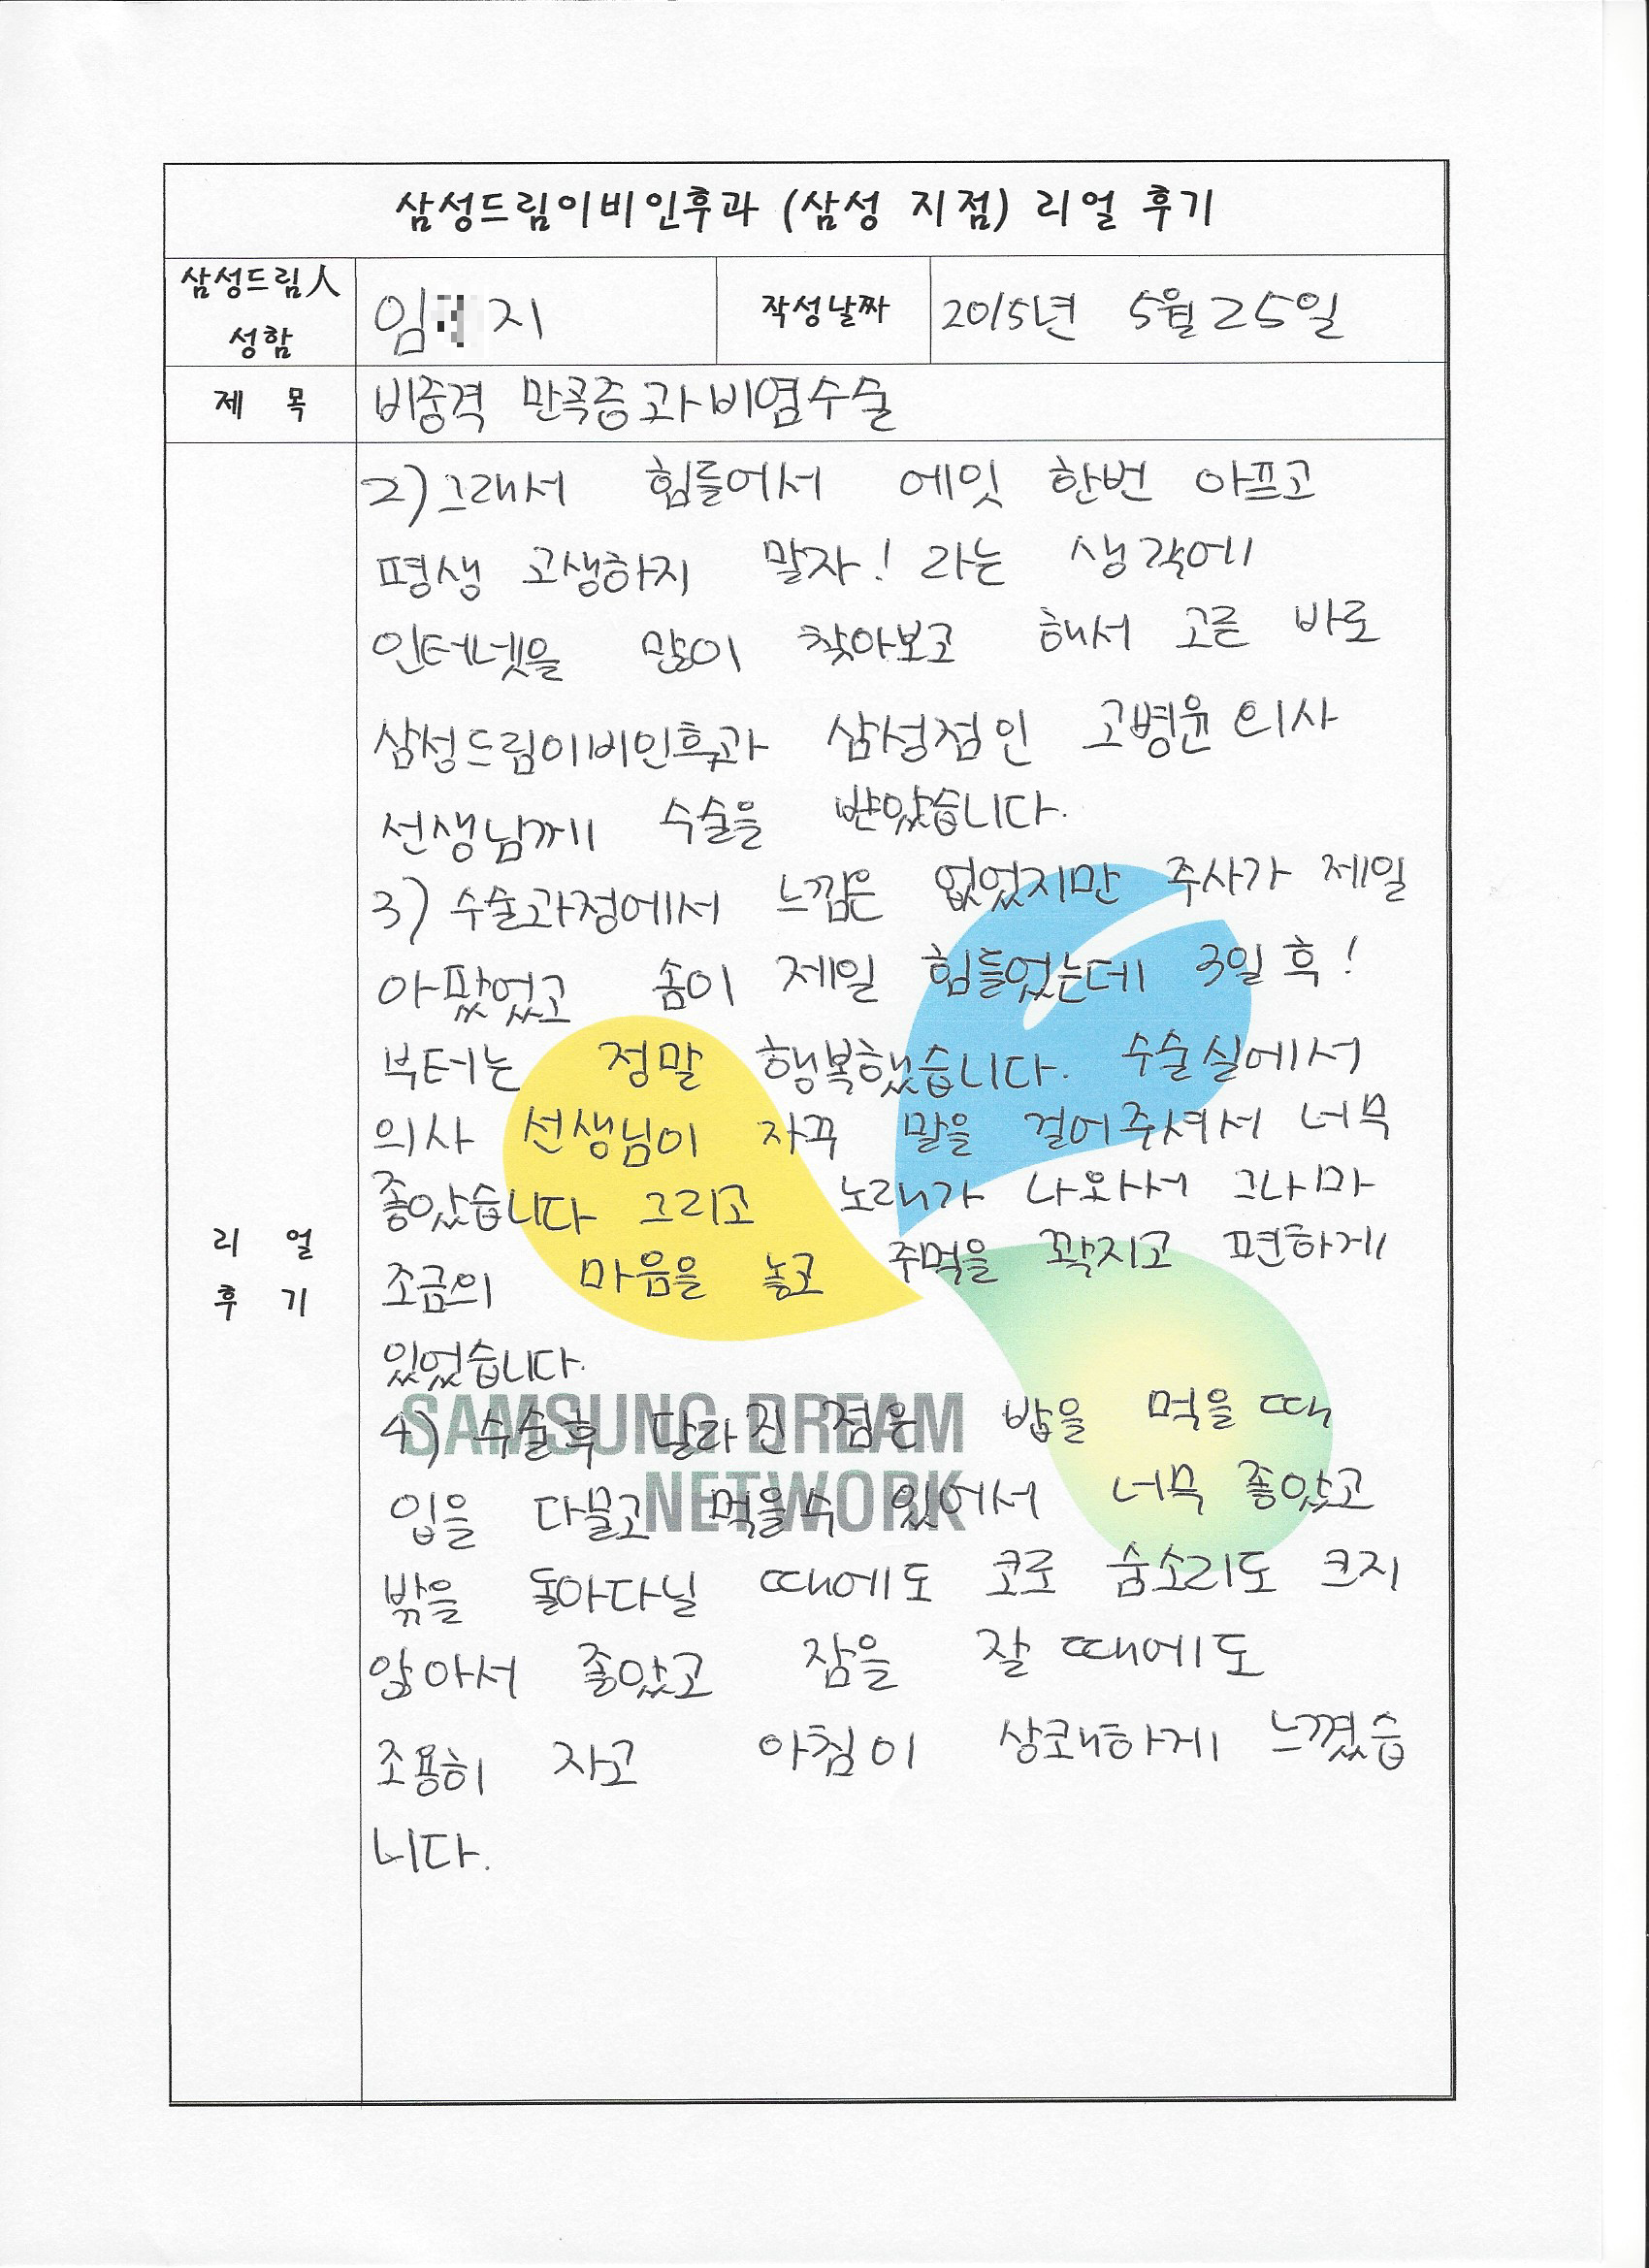 삼성드림이비인후과 (삼성 지점) 리얼 후기
삼성드림人
성함
임 지
작성날짜
2015년 5월 25일
제 목
비중격 만곡증과 비염수술
리 얼
후 기
2) 그래서 힘들어서 에잇 한번 아프고
평생 고생하지 말자! 라는 생각에
인터넷을 많이 찾아보고 해서 고른 바로
삼성드림이비인후과 삼성점인 고병윤 의사
선생님께 수술을 받았습니다.
3) 수술과정에서 느낌은 없었지만 주사가 제일
아팠었고 솜이 제일 힘들었는데 3일 후!
부터는 정말 행복했습니다. 수술실에서
의사 선생님이 자꾸 말을 걸어주셔서 너무
좋았습니다 그리고 노래가 나와서 그나마
조금의 마음을 놓고 주먹을 꽉지고 편하게
있었습니다.
SAMSUNG DREAM
NETWORK
4) 수술후 달라진 점은 밥을 먹을 때
입을 다물고 먹을수 있어서 너무 좋았고
밖을 돌아다닐 때에도 코로 숨소리도 크지
않아서 좋았고 잠을 잘 때에도
조용히 자고 아침이 상쾌하게 느꼈습
니다.